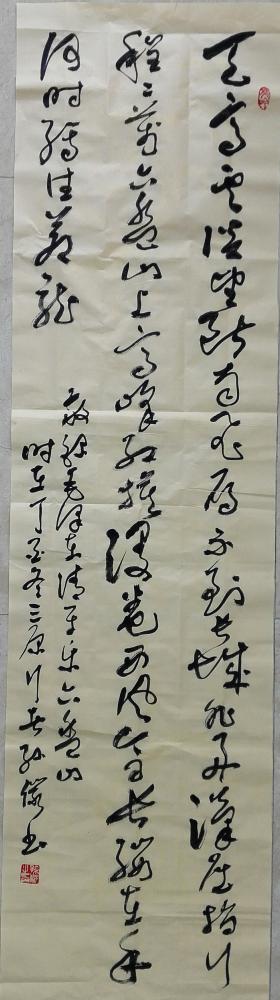 天高云淡望断南飞雁不到长城非好汉屈指行
程二万六盘山上高峰红旗漫卷西风今日长缨在手
何时缚住苍龙
敬录毛泽东清平乐六盘山
时在丁酉冬三原
书